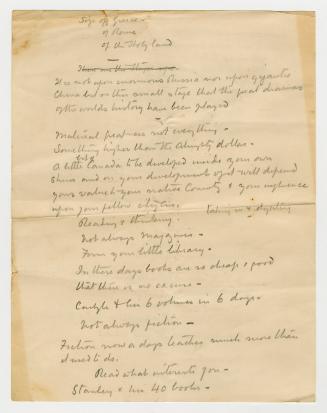 Size of Greece
of Rome
of the Holy Land
It is not upon enormous Russia nor upon gigantic
China but on this small stage that the great dramas
of the worlds history have been played
Material greatness not everything -
Something higher than the Almighty dollar.
A little Canada to be developed inside of your own
skins and on your development of it will depend
your value to your native Country & your influence
upon your fellow citizens.
Reading & thinking.
Not always Magazines -
Form your little library.
In these days books are so cheap & good
that there is no excuse -
Carlyle & his 6 volumes in 6 days.
Not always fiction -
Fiction now a days teaches much more than
it used to do.
Read what interests you -
Stanley & his 40 books -